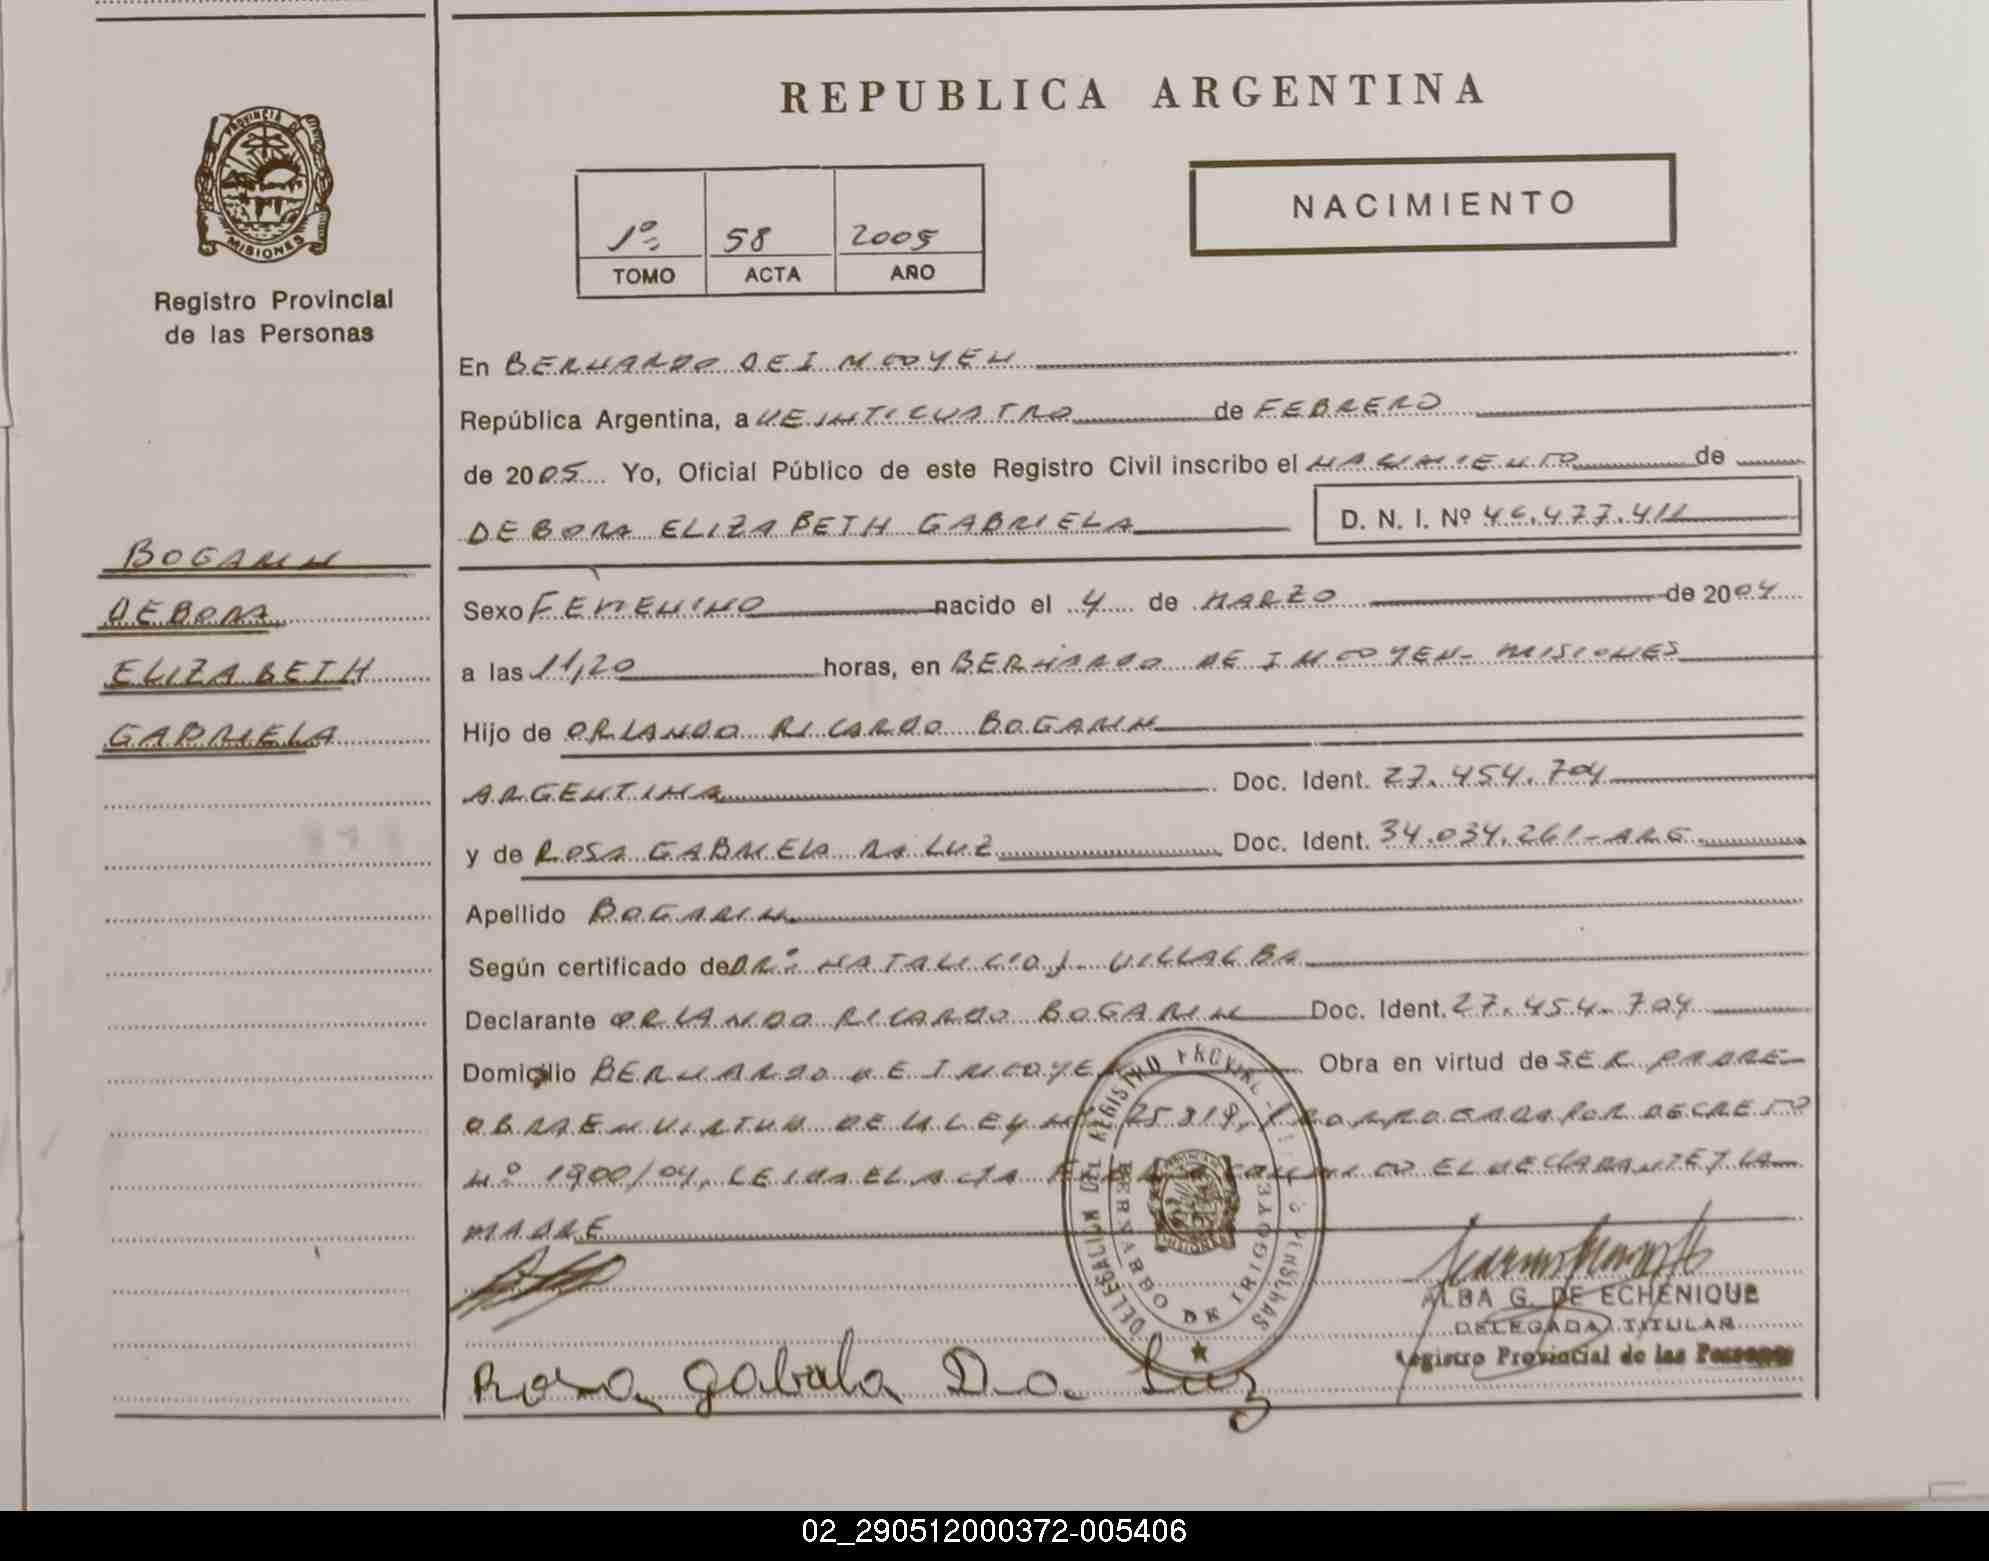 REPUBLICA ARGENTINA
PROVINCIA DE
MISIONES
Registro Provincial
de las Personas
NACIMIENTO
1º 58 2005
TOMO ACTA AÑO
En BERNARDO DE IRIGOYEN
República Argentina, a VEINTICUATRO de FEBRERO
de 2005 Yo, Oficial Público de este Registro Civil inscribo el NACIMIENTO de
DEBORA ELIZABETH GABRIELA D. N. I. Nº 46.477.411
BOGARIN
DEBORA
ELIZABETH
GABRIELA
Sexo FEMENINO nacido el 4 de MARZO de 2004
a las 11,20 horas, en BERNARDO DE IRIGOYEN- MISIONES
Hijo de ORLANDO RICARDO BOGARIN
ARGENTINA Doc. Ident. 27.454.704
y de ROSA GABRIELA DA LUZ Doc. Ident. 34.034.261-ARG.
Apellido BOGARIN
Según certificado de DR. NATALICIO J. VILLALBA
Declarante ORLANDO RICARDO BOGARIN Doc. Ident. 27.454.704
Domicilio BERNARDO DE IRIGOYEN Obra en virtud de SER PADRE-
OBRA EN VIRTUD DE LA LEY Nº 25.819, PRORROGADA POR DECRETO
Nº 1900/04, LEIDA EL ACTA FIRMA CONMIGO EL DECLARANTE Y LA
MADRE
DELEGACION DEL REGISTRO PROVINCIAL DE LAS PERSONAS
BERNARDO DE IRIGOYEN
MISIONES
ALBA G. DE ECHENIQUE
DELEGADA TITULAR
Registro Provincial de las Personas
Rosa Gabriela Da Luz
02_290512000372-005406